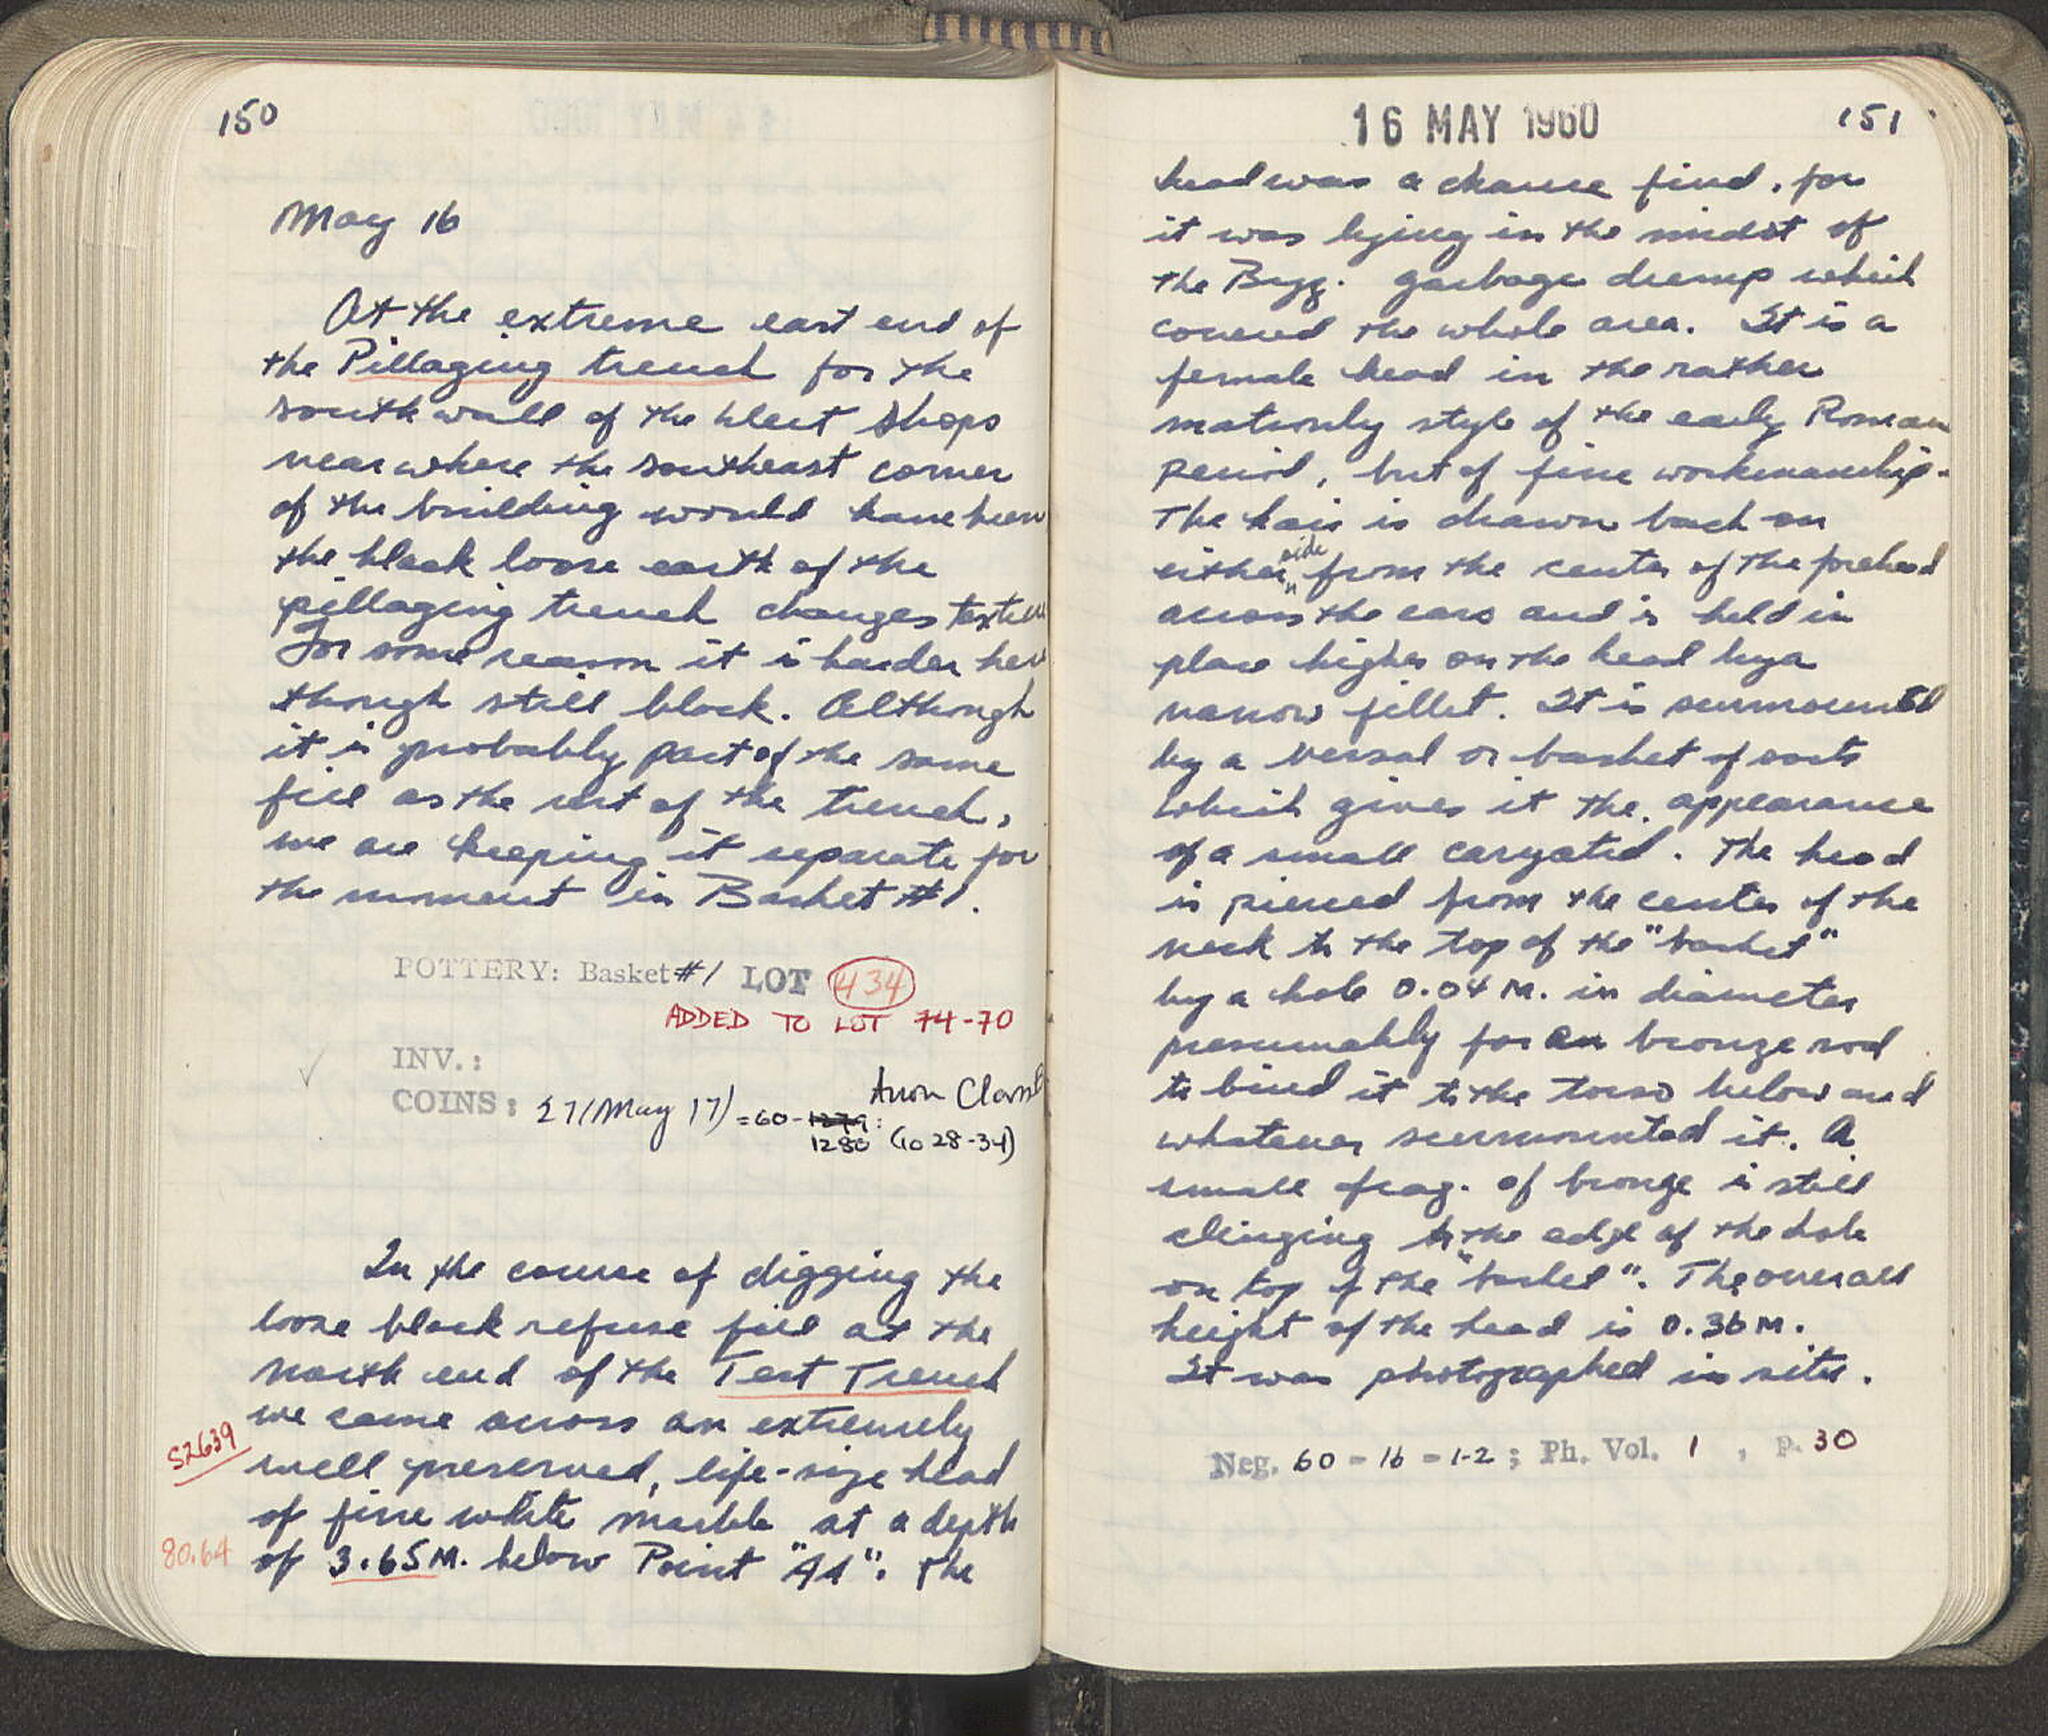 150
May 16
At the extreme east end of
the Pillaging trench for the
south wall of the West Shops
near where the southeast corner
of the building would have been
the black loose earth of the
pillaging trench changes
For some reason it is harder
though still black. Although
it is probably part of the same
fill as the rest of the trench,
we are keeping it separate for
the moment in Basket #1.
POTTERY: Basket #1 LOT 434
ADDED TO LOT 74-70
INV.:
Anon Class
COINS: 27 (May 17) = 60-1279:
1280 (1028-34)
In the course of digging the
loose black refuse fill at the
north end of the Test Trench
we came across an extremely
S2639 well preserved, life-size head
of fine white marble at a depth
80.64 of 3.65 M. below Point "A1". The
16 MAY 1960 151
head was a chance find, for
it was lying in the midst of
the Byz. garbage dump which
covered the whole area. It is a
female head in the rather
matronly style of the early Roman
period, but of fine workmanship.
The hair is drawn back on
either side from the center of the forehead
across the ears and is held in
place higher on the head by a
narrow fillet. It is surmounted
by a vessal or basket of sorts
which gives it the appearance
of a small caryatid. The head
is pierced from the center of the
neck to the top of the "basket"
by a hole 0.04 M. in diameter
presumably for a bronze rod
to bind it to the torso below and
whatever surmounted it. A
small frag. of bronze is still
clinging to the edge of the hole
on top of the "basket". The overall
height of the head is 0.36 M.
It was photographed in situ.
Neg. 60-16-1-2; Ph. Vol. 1, p. 30